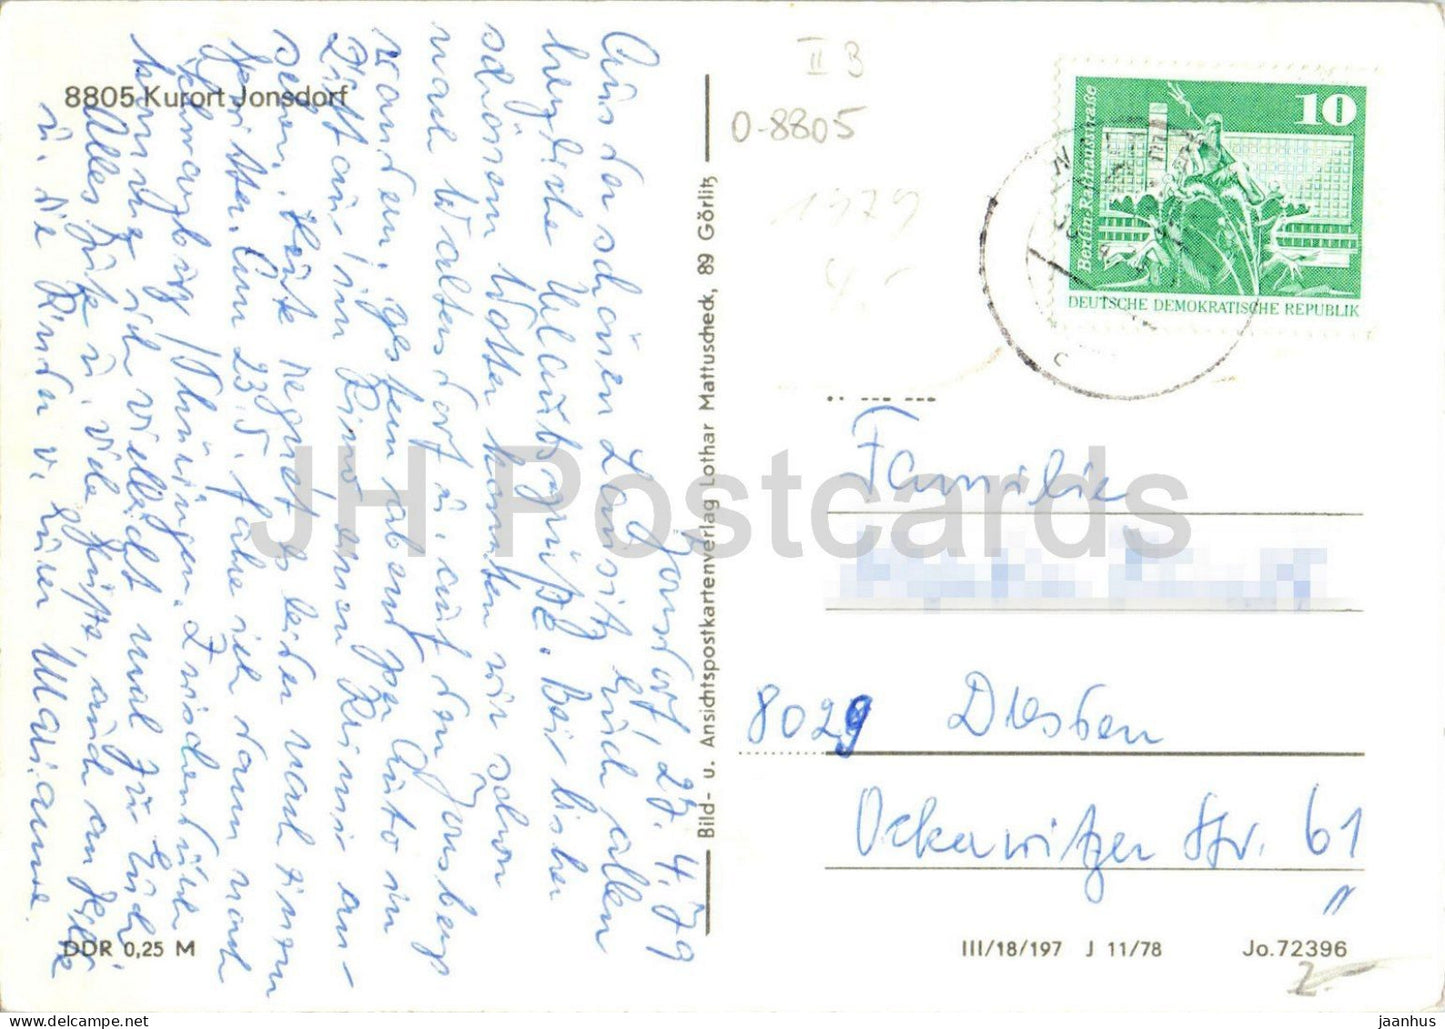 8805 Kurort Jonsdorf
Jonsdorf, 27.4.79
Aus der schönen Lausitz Euch allen
herzliche Urlaubsgrüße. Bei bisher
schönem Wetter konnten wir schon
nach Waltersdorf u. auf den Jonsberg
wandern, gestern abend per Auto in
Zittau im Kino einen Krimi an-
sehen. Heute regnet es leider nach einem
Gewitter. Am 23.5. fahre ich dann nach
Schmalzgrub /Thüringen. Zwischendurch
komme ich vielleicht mal zu Euch.
Alles Gute u. viele Grüße, auch an Hilde
u. die Kinder v. Eurer Marianne.
DDR 0,25 M
Bild- u. Ansichtspostkartenverlag Lothar Mattuscheck, 89 Görlitz
II 3
0-8805
1979
4.-
10
Berlin-Rathausstraße
DEUTSCHE DEMOKRATISCHE REPUBLIK
Familie
8029 Dresden
Ockerwitzer Str. 61
III/18/197 J 11/78 Jo.72396
2.-
JH Postcards
jaanhus